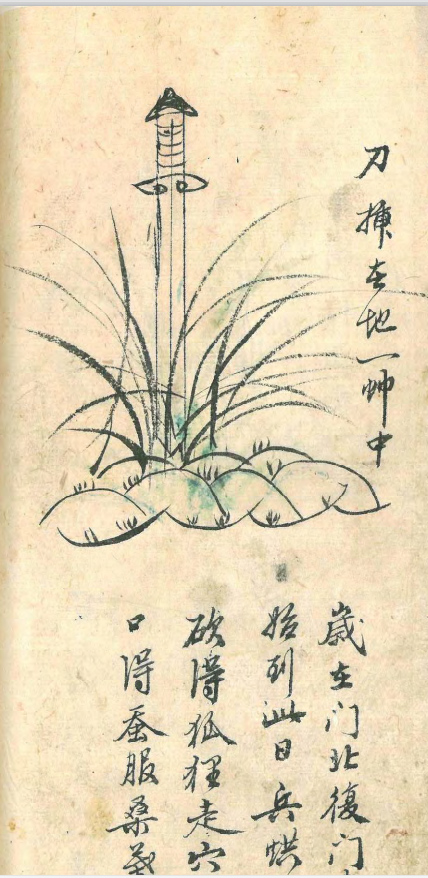 刀揷在地一艸中
歲在门北復门
始到此日兵烘
砍得狐狸走穴
口得蚕服桑